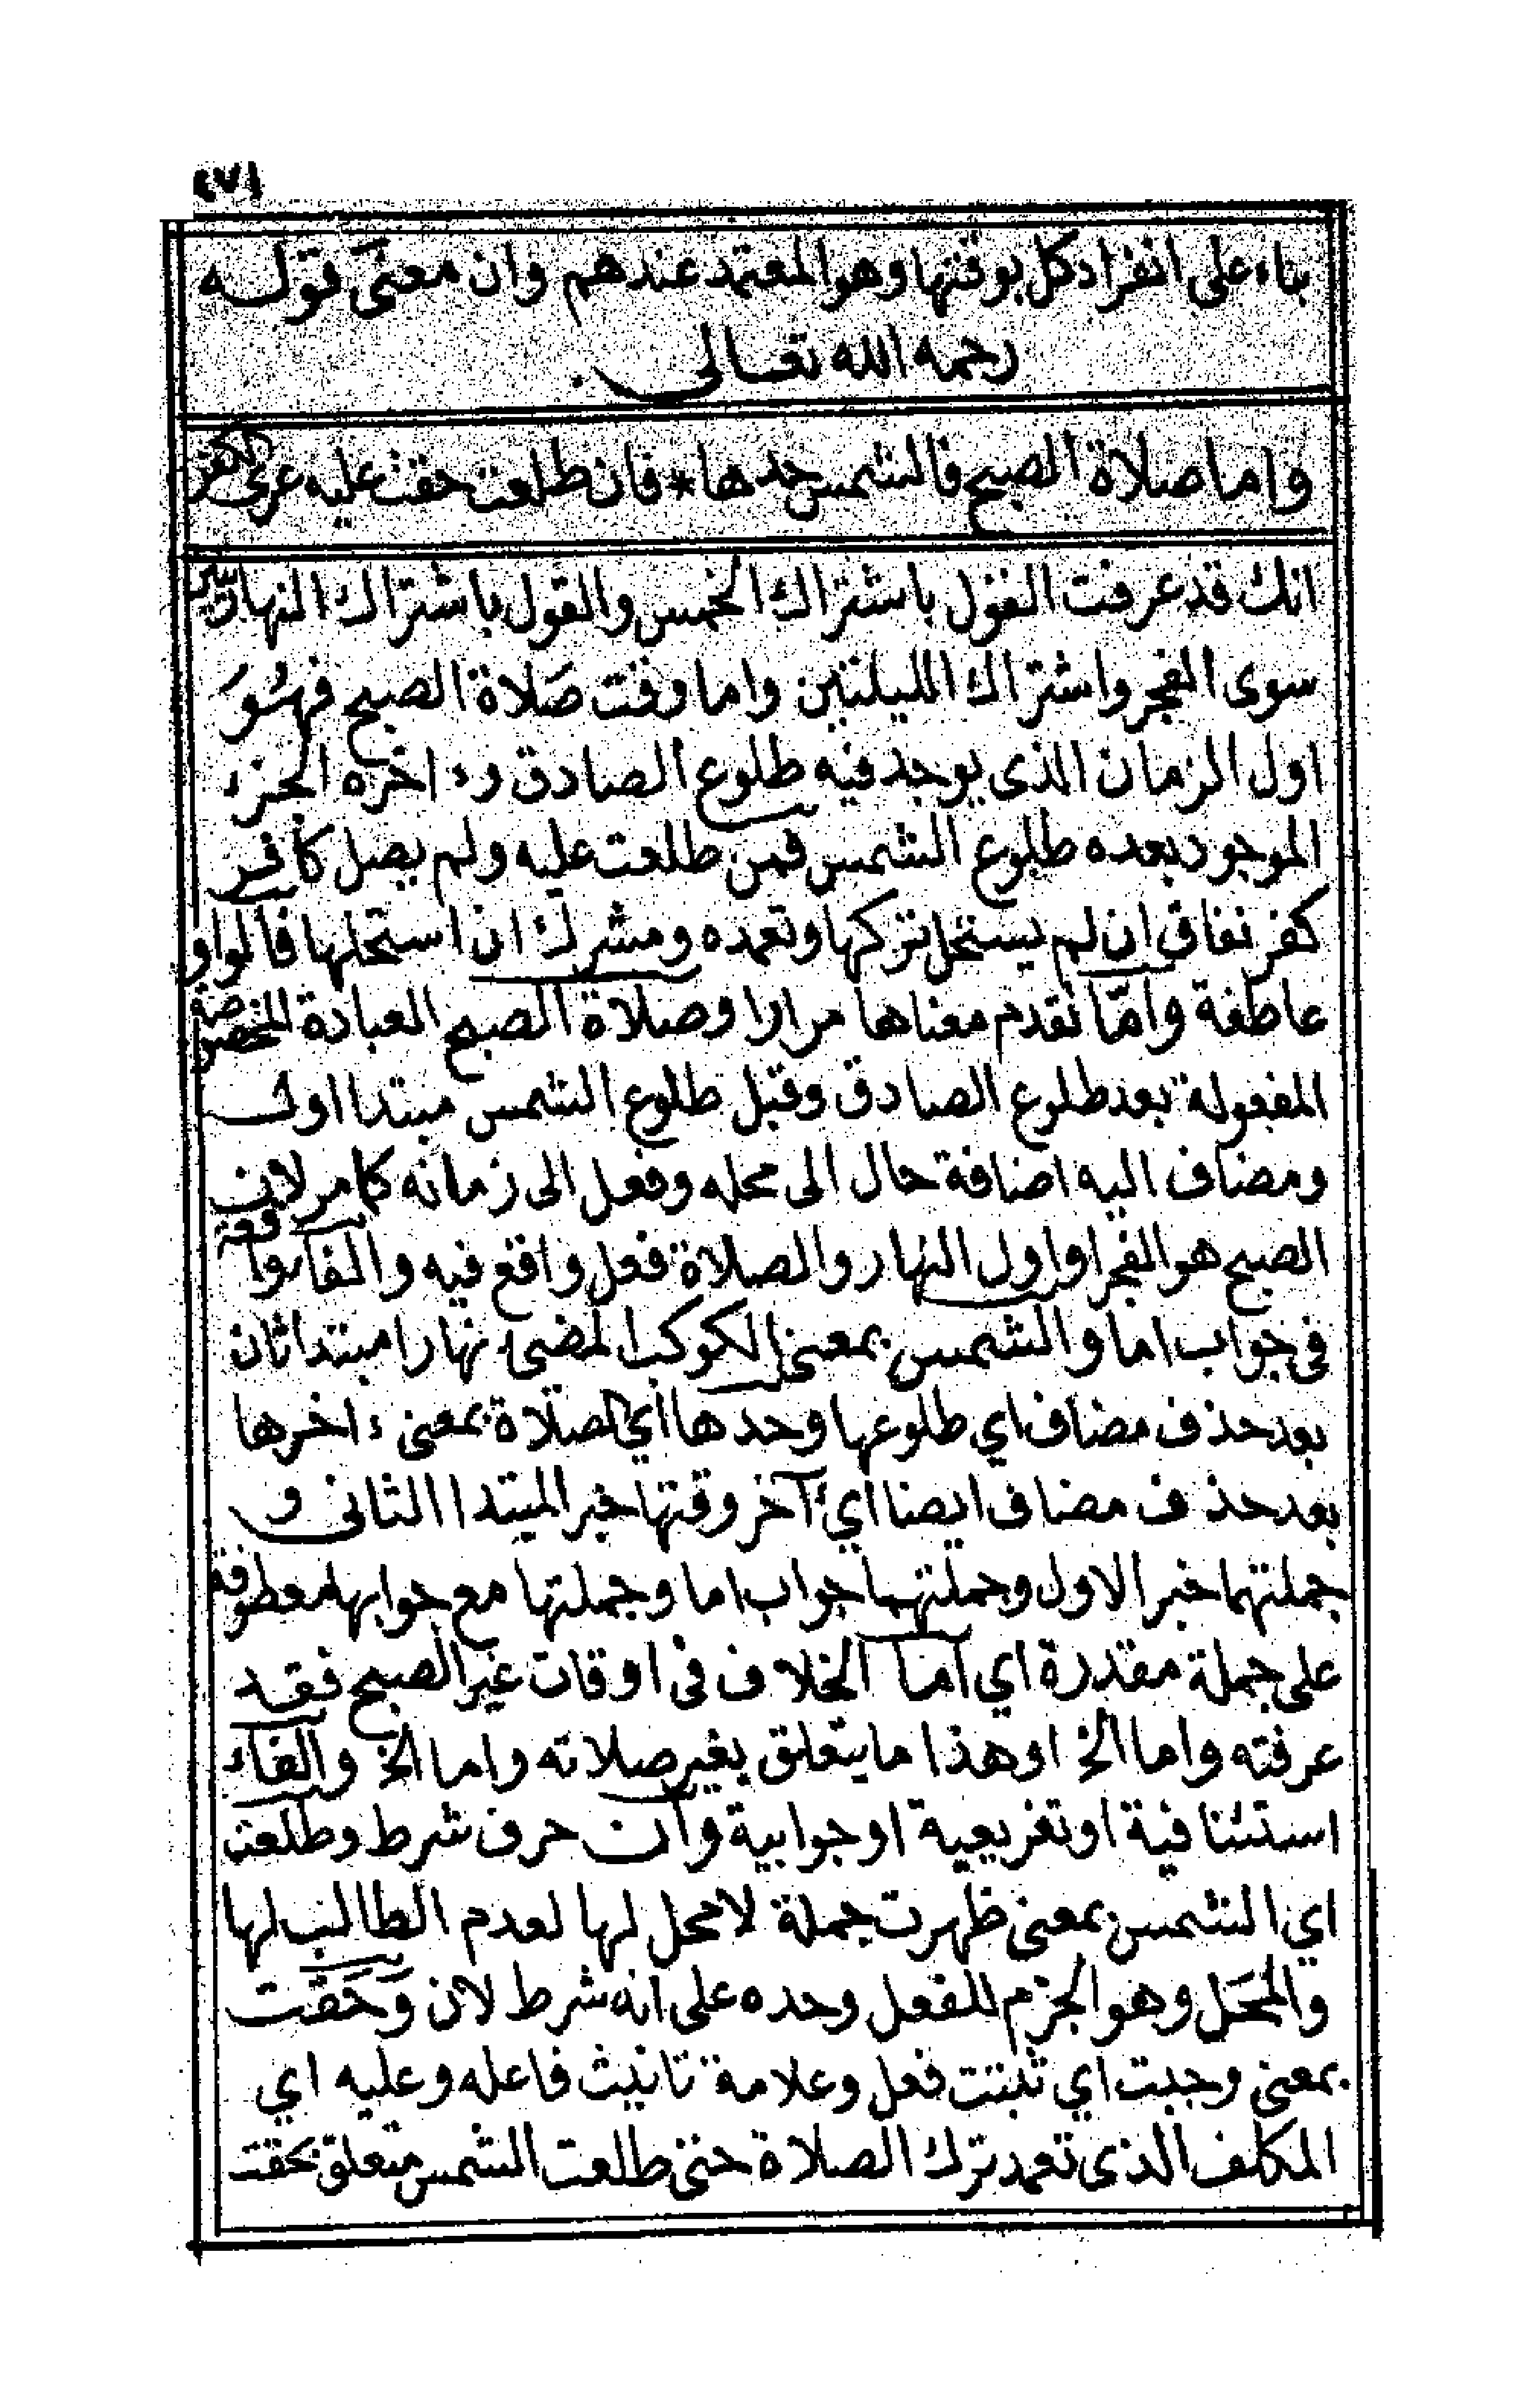 (٧١
بناء على انفراد كل بوقتها وهو المعتمد عندهم وان معنى قوله
رحمه الله تعالى
واما صلاة الصبح فالشمس حدها * فان طلعت حقت عليه عرى الكفر
انك قد عرفت القول باشتراك الخمس والقول باشتراك النهاريتين
سوى الفجر واشتراك الليلتين واما وقت صَلاة الصبح فهُوَ
اول الزمان الذى يوجد فيه طلوع الصادق وءاخره الجزء
الموجود بعده طلوع الشمس فمن طلعت عليه ولم يصل كافر
كفر نفاق ان لم يستحل تركها وتعمده ومشرك ان استحلها فالواو
عاطفة وامّا تقدم معناها مرارا وصلاة الصبح العبادة المخصصة
المفعولة بعد طلوع الصادق وقبل طلوع الشمس مبتدا اول
ومضاف اليه اضافة حال الى محله وفعل الى زمانه كما مر لان
الصبح هو الفجر او اول النهار والصلاة فعل واقع فيه والفاء واقعة
فى جواب اما والشمس بمعنى الكوكب المضىء نهارا مبتدا ثان
بعد حذف مضاف اي طلوعها وحدها اي الصلاة بمعنى ءاخرها
بعد حذف مضاف ايضا اي آخر وقتها خبر المبتدا الثانى و
جملتهما خبر الاول وجملتهما جواب اما وجملتها مع جوابها معطوفة
على جملة مقدرة اي اما الخلاف فى اوقات غير الصبح فقد
عرفته واما الخ او هذا ما يتعلق بغير صلاته واما الخ والفاء
استئنافية او تفريعية او جوابية وان حرف شرط وطلعت
اي الشمس بمعنى ظهرت جملة لا محل لها لعدم الطالب لها
والمحَل وهو الجزم للفعل وحده على انه شرط لان وَحَقت
بمعنى وجبت اي ثبتت فعل وعلامة تانيث فاعله وعليه اي
المكلف الذى تعمد ترك الصلاة حتى طلعت الشمس متعلق بحقت